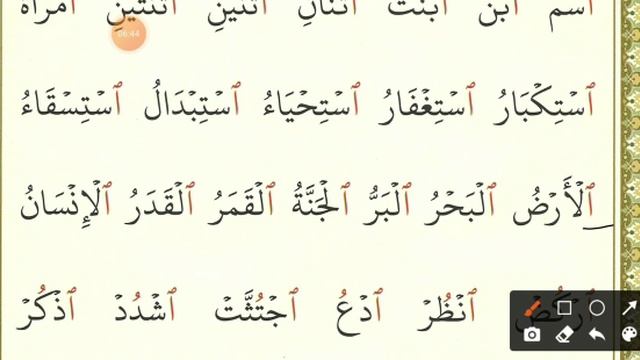 ٱسم ٱبن ٱبنت ٱثنان ٱثنين ٱثنتين ٱمرأة
06:44
ٱسْتِكْبَارُ ٱسْتِغْفَارُ ٱسْتِحْيَاءُ ٱسْتِبْدَالُ ٱسْتِسْقَاءُ
ٱلْأَرْضُ ٱلْبَحْرُ ٱلْبَرُّ ٱلْجَنَّةُ ٱلْقَمَرُ ٱلْقَدَرُ ٱلْإِنْسَانُ
ٱرْكُضْ ٱنْظُرْ ٱدْعُ ٱجْتُثَّتْ ٱشْدُدْ ٱذْكُرْ